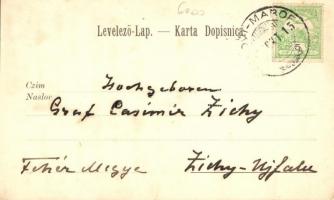 Levelező-Lap. — Karta Dopisnica
Czim
Naslov
Hochgeboren
Graf Casimir Zichy
Fehér Megye Zichy-Ujfalu